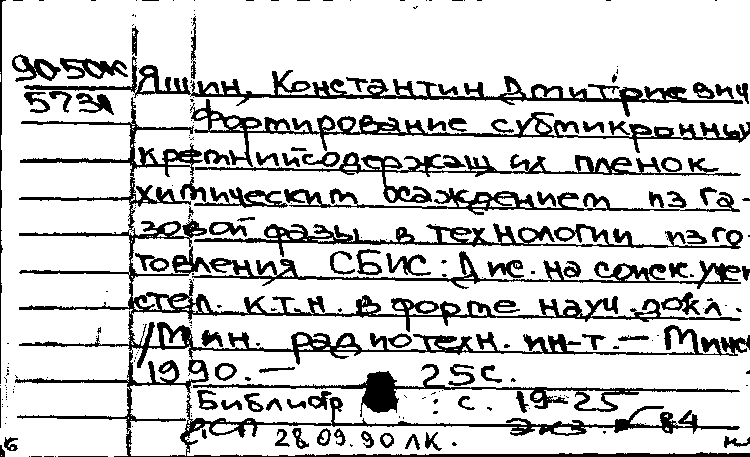 90-50к
573л
Яшин, Константин Дмитриевич
Формирование субмикронных
кремнийсодержащих пленок
химическим осаждением из га-
зовой фазы в технологии изго-
товления СБИС: Дис. на соиск. учен
степ. к.т.н. в форме науч. докл.
/Мин. радиотехн. ин-т. — Минск
1990. — 25с.
Библиогр : с. 19-25
28.09.90 ЛК. Экз. 84